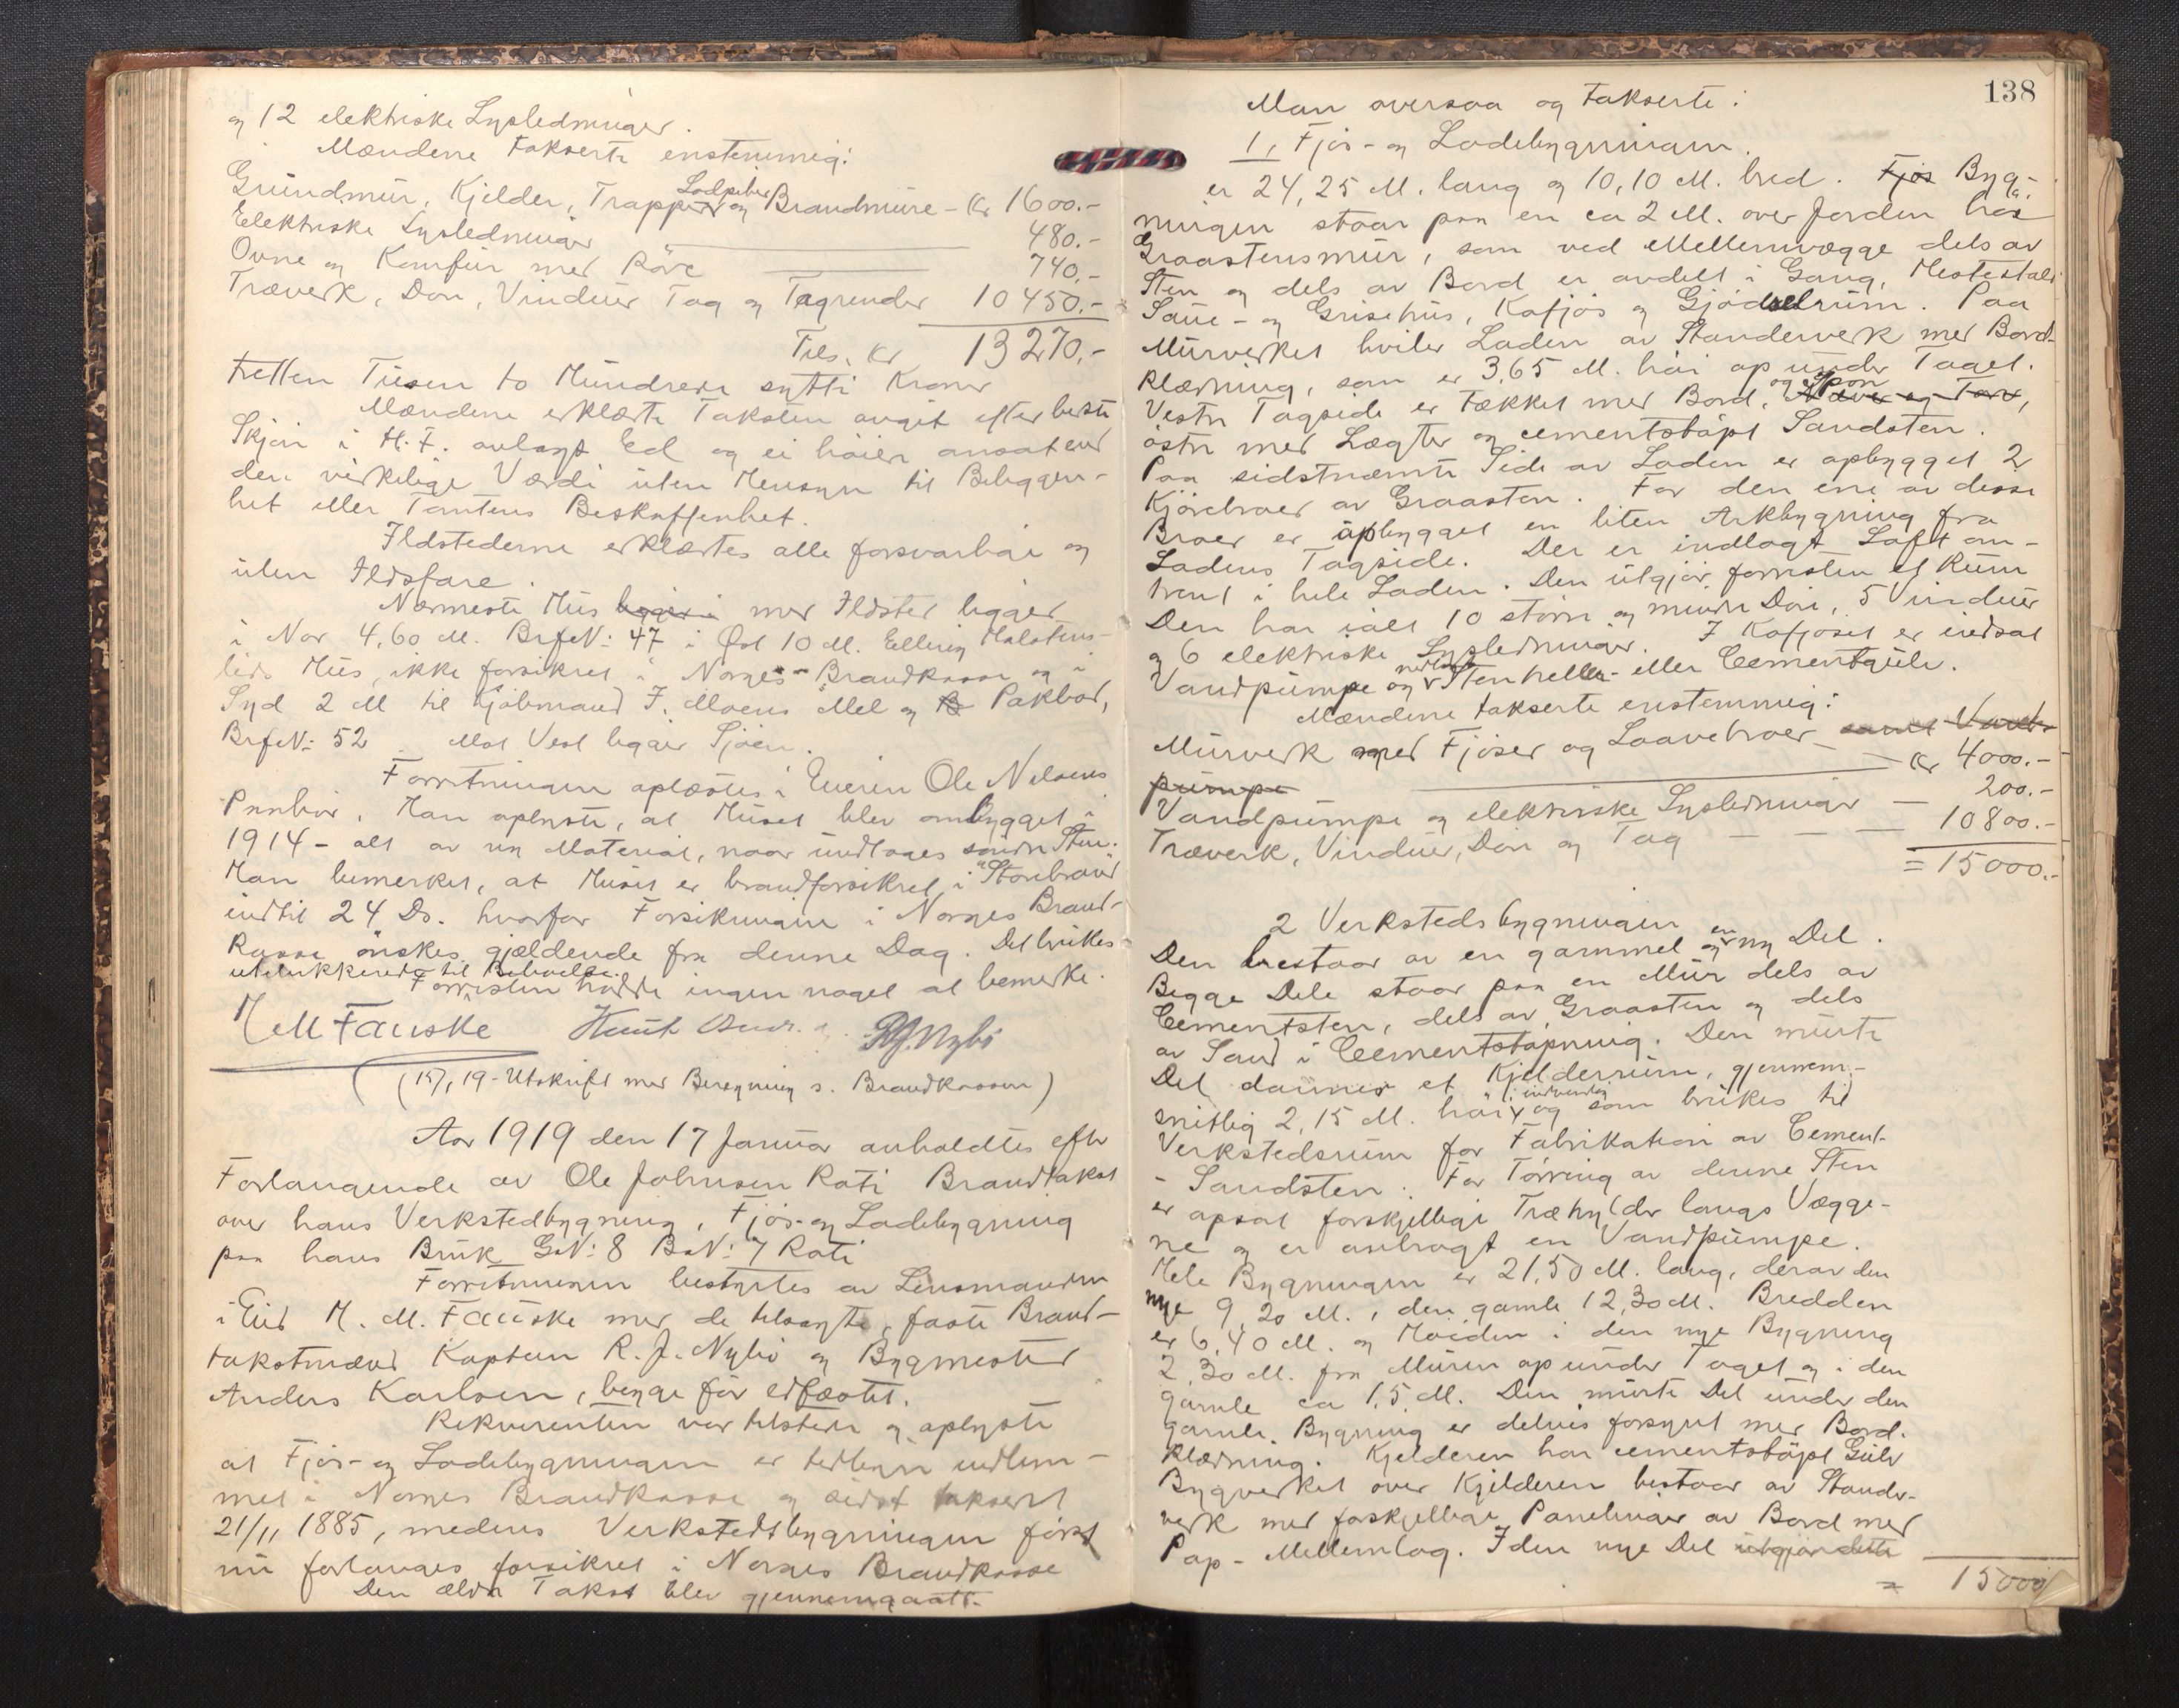 og 12 elektriske Lysledninger.
Mændene takserte enstemmig:
Grundmur, Kjelder, Trapper og Brandmure - Kr 1600.-
Elektriske Lysledninger 480.-
Ovne og Komfur med Rør 740.-
Træverk, Dør, Vinduer Tag og Tagrender 10450.-
Tils. Kr 13270.-
tretten Tusen to Hundrede sytti Kroner
Mændene erklærte Taksten avgit efter beste
Skjøn i H. F. avlagt Ed og ei høier ansat end
den virkelige Værdi uten Hensyn til Beliggen-
het eller Tomtens Beskaffenhet.
Ildstederne erklærtes alle forsvarlige og
uten Ildsfare.
Nærmeste Hus ligger i med Ildsted ligger
i Nor 4,60 M. BrfN: 47 i Øst 10 M. Elling
Hus, ikke forsikret i Norges Brandkasse og i
Syd 2 M til Kjøbmand J. Moens Mel og Pakbod,
BrfN: 52. Mot Vest ligger Sjøen.
Forretningen oplæstes i Eieren Ole Nilsens
Paahør. Han oplyste, at Huset blev ombygget i
1914 - alt av ny Material, naar undtages søndre Stue.
Han bemerket, at Huset er brandforsikret i Storebrand
indtil 24 Ds. hvorfor Forsikringen i Norges Brand-
kasse ønskes gjældende fra denne Dag. Det brukes
utelukkende til Beboelse.
Forresten hadde ingen noget at bemerke.
M M Fauske Knut R J. Nybø
(15/1 19 - Utskrift med Beregning s. Brandkassen)
Aar 1919 den 17 Januar avholdtes efter
Forlangende av Ole Johnsen Roti Brandtakst
over hans Verkstedbygning, Fjøs- og Ladebygning
paa hans Bruk GN: 8 BN: 7 Roti
Forretningen bestyrtes av Lensmanden
i Eid M. M. Fauske med de tilsagte, faste Brand-
takstmænd Kaptein R. J. Nybø og Bygmester
Anders Karlsen, begge før edfæstet.
Rekvirenten var tilstede og oplyste
at Fjøs- og Ladebygningen er tidligere indlem-
met i Norges Brandkasse og sidst taksert
21/11 1885, medens Verkstedsbygningen først
nu forlanges forsikret i Norges Brandkasse
Den ældre Takst blev gjennemgaatt.
138
Man oversaa og takserte:
1, Fjøs- og Ladebygningen.
er 24,25 M. lang og 10,10 M. bred. Fjøs Byg-
ningen staar paa en ca 2 M. over Jorden høi
Graastensmur, som ved Mellemvægge dels av
Sten og dels av Bord er avdelt i Gang, Hestestald
Saue- og Grisehus, Kofjøs og Gjødselrum. Paa
Murverket hviler Laden av Standerverk med Bord-
klædning, som er 3,65 M. høi op under Taget.
og Spon
Vestre Tagside er tækket med Bord, Næver og Torv,
østre med Lægter og cementstøpt Sandsten.
Paa sidstnævnte Side av Laden er opbygget 2
Kjørebroer av Graasten. For den ene av disse
Broer er opbygget en liten Arkbygning fra
Ladens Tagside. Der er indlagt Loft om-
trent i hele Laden. Den utgjør forresten et Rum
Den har ialt 10 større og mindre Døre, 5 Vinduer
og 6 elektriske Lysledninger. I Kofjøset er indsat
Vandpumpe og nedlagt Stenheller- eller Cementgulv.
Mændene takserte enstemmig:
Murverk med Fjøser og Laavebroer samt Vand-
pumpe Kr 4000.-
Vandpumpe og elektriske Lysledninger 200.-
Træverk, Vinduer, Dør og Tag 10800.-
= 15000.-
2 Verkstedsbygningen
Den bestaar av en gammel og en ny Del.
Begge Dele staar paa en Mur dels av
Cementsten, dels av Graasten og dels
av Sand i Cementstøpning. Den murte
Del danner et Kjelderrum, gjennem-
snitlig 2,15 M. høi indvendig og som brukes til
Verkstedsrum for Fabrikation av Cement-
- Sandsten. For Tørring av denne Sten
er opsat forskjellige Træhylder langs Vægge-
ne og er anbragt en Vandpumpe.
Hele Bygningen er 21,50 M. lang, derav den
nye 9,20 M., den gamle 12,30 M. Bredden
er 6,40 M. og Høiden i den nye Bygning
2,30 M. fra Muren op under Taget og i den
gamle ca 1,5 M. Den murte Del under den
gamle Bygning er delvis forsynt med Bord-
klædning. Kjelderen har cementstøpt Gulv
Bygverket over Kjelderen bestaar av Stander-
verk med forskjellige Panelinger av Bord med
Pap - Mellemlag. I den nye Del utgjør dette
= 15000